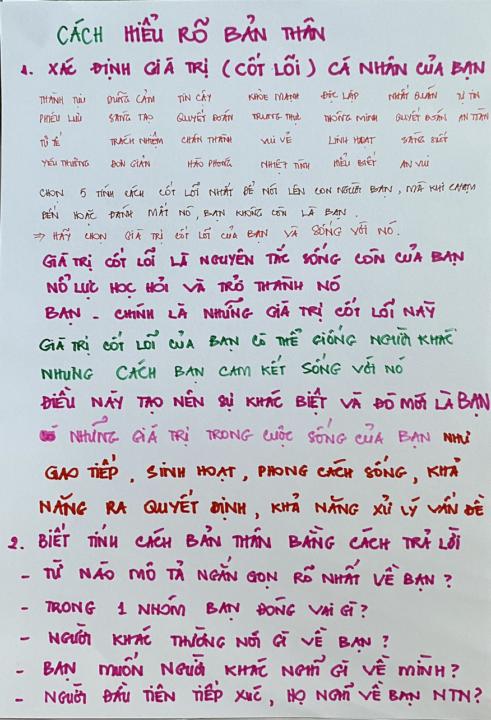 CÁCH HIỂU RÕ BẢN THÂN
1. XÁC ĐỊNH GIÁ TRỊ (CỐT LÕI) CÁ NHÂN CỦA BẠN
THÀNH TỰU DŨNG CẢM TIN CẬY KHỎE MẠNH ĐỘC LẬP NHẤT QUÁN TỰ TIN
PHIÊU LƯU SÁNG TẠO QUYẾT ĐOÁN TRUNG THỰC THÔNG MINH QUYẾT ĐOÁN AN TOÀN
TỬ TẾ TRÁCH NHIỆM CHÂN THÀNH VUI VẺ LINH HOẠT SÁNG SUỐT
YÊU THƯƠNG ĐƠN GIẢN HÀO PHÓNG NHIỆT TÌNH HIỂU BIẾT AN VUI
CHỌN 5 TÍNH CÁCH CỐT LÕI NHẤT ĐỂ NÓI LÊN CON NGƯỜI BẠN, MÀ KHI CHẠM
ĐẾN HOẶC ĐÁNH MẤT NÓ, BẠN KHÔNG CÒN LÀ BẠN.
⇒ HÃY CHỌN GIÁ TRỊ CỐT LÕI CỦA BẠN VÀ SỐNG VỚI NÓ.
GIÁ TRỊ CỐT LÕI LÀ NGUYÊN TẮC SỐNG CÒN CỦA BẠN
NỖ LỰC HỌC HỎI VÀ TRỞ THÀNH NÓ
BẠN - CHÍNH LÀ NHỮNG GIÁ TRỊ CỐT LÕI NÀY
GIÁ TRỊ CỐT LÕI CỦA BẠN CÓ THỂ GIỐNG NGƯỜI KHÁC
NHƯNG CÁCH BẠN CAM KẾT SỐNG VỚI NÓ
ĐIỀU NÀY TẠO NÊN SỰ KHÁC BIỆT VÀ ĐÓ MỚI LÀ BẠN
NHỮNG GIÁ TRỊ TRONG CUỘC SỐNG CỦA BẠN NHƯ
GIAO TIẾP, SINH HOẠT, PHONG CÁCH SỐNG, KHẢ
NĂNG RA QUYẾT ĐỊNH, KHẢ NĂNG XỬ LÝ VẤN ĐỀ
2. BIẾT TÍNH CÁCH BẢN THÂN BẰNG CÁCH TRẢ LỜI
- TỪ NÀO MÔ TẢ NGẮN GỌN RÕ NHẤT VỀ BẠN?
- TRONG 1 NHÓM BẠN ĐÓNG VAI GÌ?
- NGƯỜI KHÁC THƯỜNG NÓI GÌ VỀ BẠN?
- BẠN MUỐN NGƯỜI KHÁC NGHĨ GÌ VỀ MÌNH?
- NGƯỜI ĐẦU TIÊN TIẾP XÚC, HỌ NGHĨ VỀ BẠN NTN?